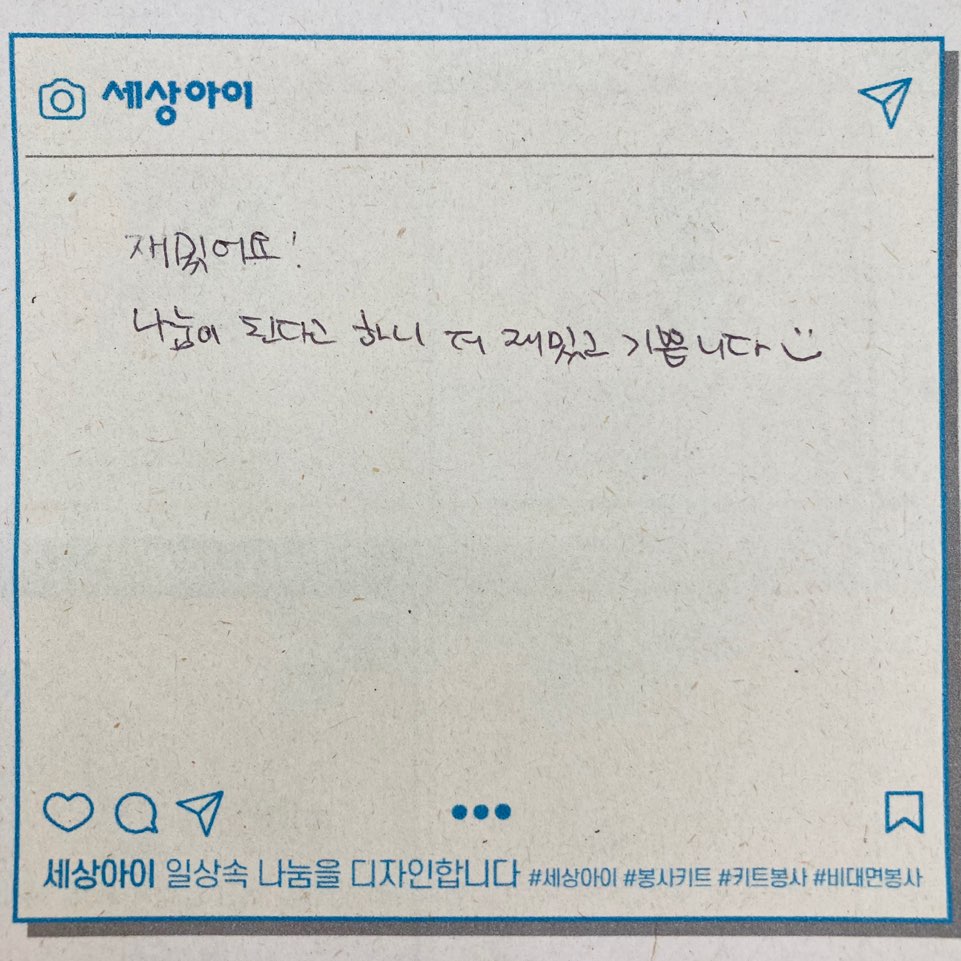 세상아이
재밌어요!
나눔이 된다고 하니 더 재밌고 기쁩니다
세상아이 일상속 나눔을 디자인합니다 #세상아이 #봉사키트 #키트봉사 #비대면봉사